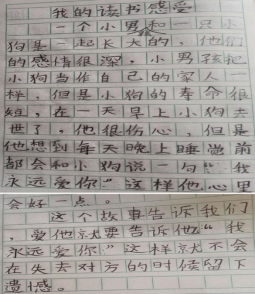 我的读书感受
一个小男孩和一只小
狗是一起长大的，他们
的感情很深，小男孩把
小狗当作自己的家人一
样，但是小狗的寿命很
短，在一天早上小狗去
世了，他很伤心，但是
他想到每天晚上睡觉前
都会和小狗说一句“我
永远爱你”这样他心里
会好一点。
这个故事告诉我们
，爱他就要告诉他“我
永远爱你”这样就不会
在失去对方的时候留下
遗憾。